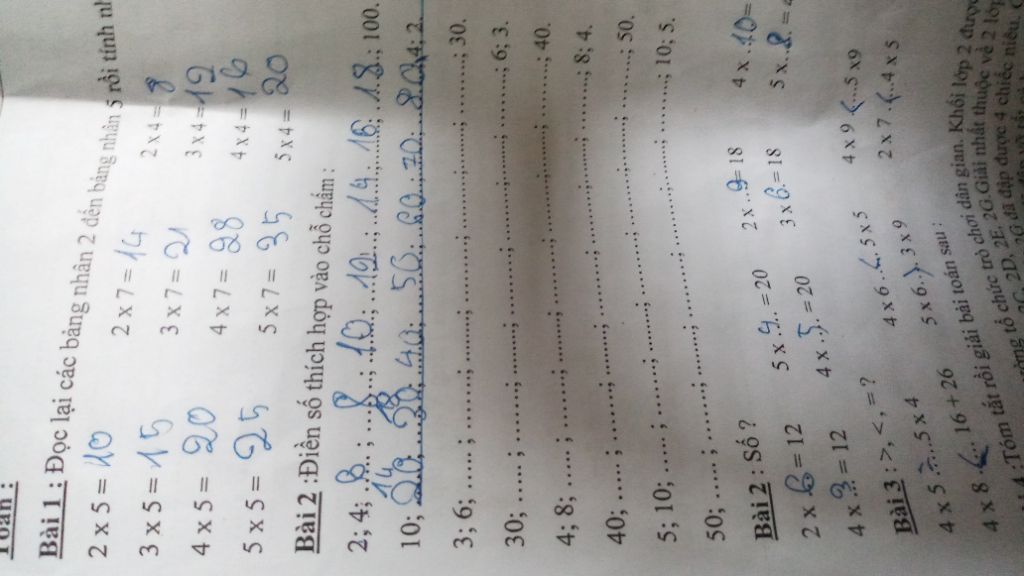 Toán :
Bài 1 : Đọc lại các bảng nhân 2 đến bảng nhân 5 rồi tính
2 x 5 = 10 2 x 7 = 14 2 x 4 = 8
3 x 5 = 15 3 x 7 = 21 3 x 4 = 12
4 x 5 = 20 4 x 7 = 28 4 x 4 = 16
5 x 5 = 25 5 x 7 = 35 5 x 4 = 20
Bài 2 :Điền số thích hợp vào chỗ chấm :
2; 4; 8; 10; 12; 14; 16; 18; 100.
10; 40; 60; 70; 80; 4; 2.
3; 6; .....; .....; .....; .....; .....; .....; .....; 30.
30; .....; .....; .....; .....; .....; .....; .....; 6; 3.
4; 8; .....; .....; .....; .....; .....; .....; .....; 40.
40; .....; .....; .....; .....; .....; .....; .....; 8; 4.
5; 10; .....; .....; .....; .....; .....; .....; .....; 50.
50; .....; .....; .....; .....; .....; .....; .....; 10; 5.
Bài 2 : Số ?
2 x 6 = 12 5 x 4 = 20 2 x 9 = 18 4 x 10 =
4 x 3 = 12 4 x 5 = 20 3 x 6 = 18 5 x 8 =
Bài 3 : >, <, = ?
4 x 5 = 5 x 4 4 x 6 < 5 x 5 4 x 9 < 5 x9
4 x 8 < 16 + 26 5 x 6 > 3 x 9 2 x 7 < 4 x 5
4 :Tóm tắt rồi giải bài toán sau :
tổ chức trò chơi dân gian. Khối lớp 2 được
2C, 2D, 2E, 2G.Giải nhất thuộc về 2 lớp
2G đã đập được 4 chiếc niêu.